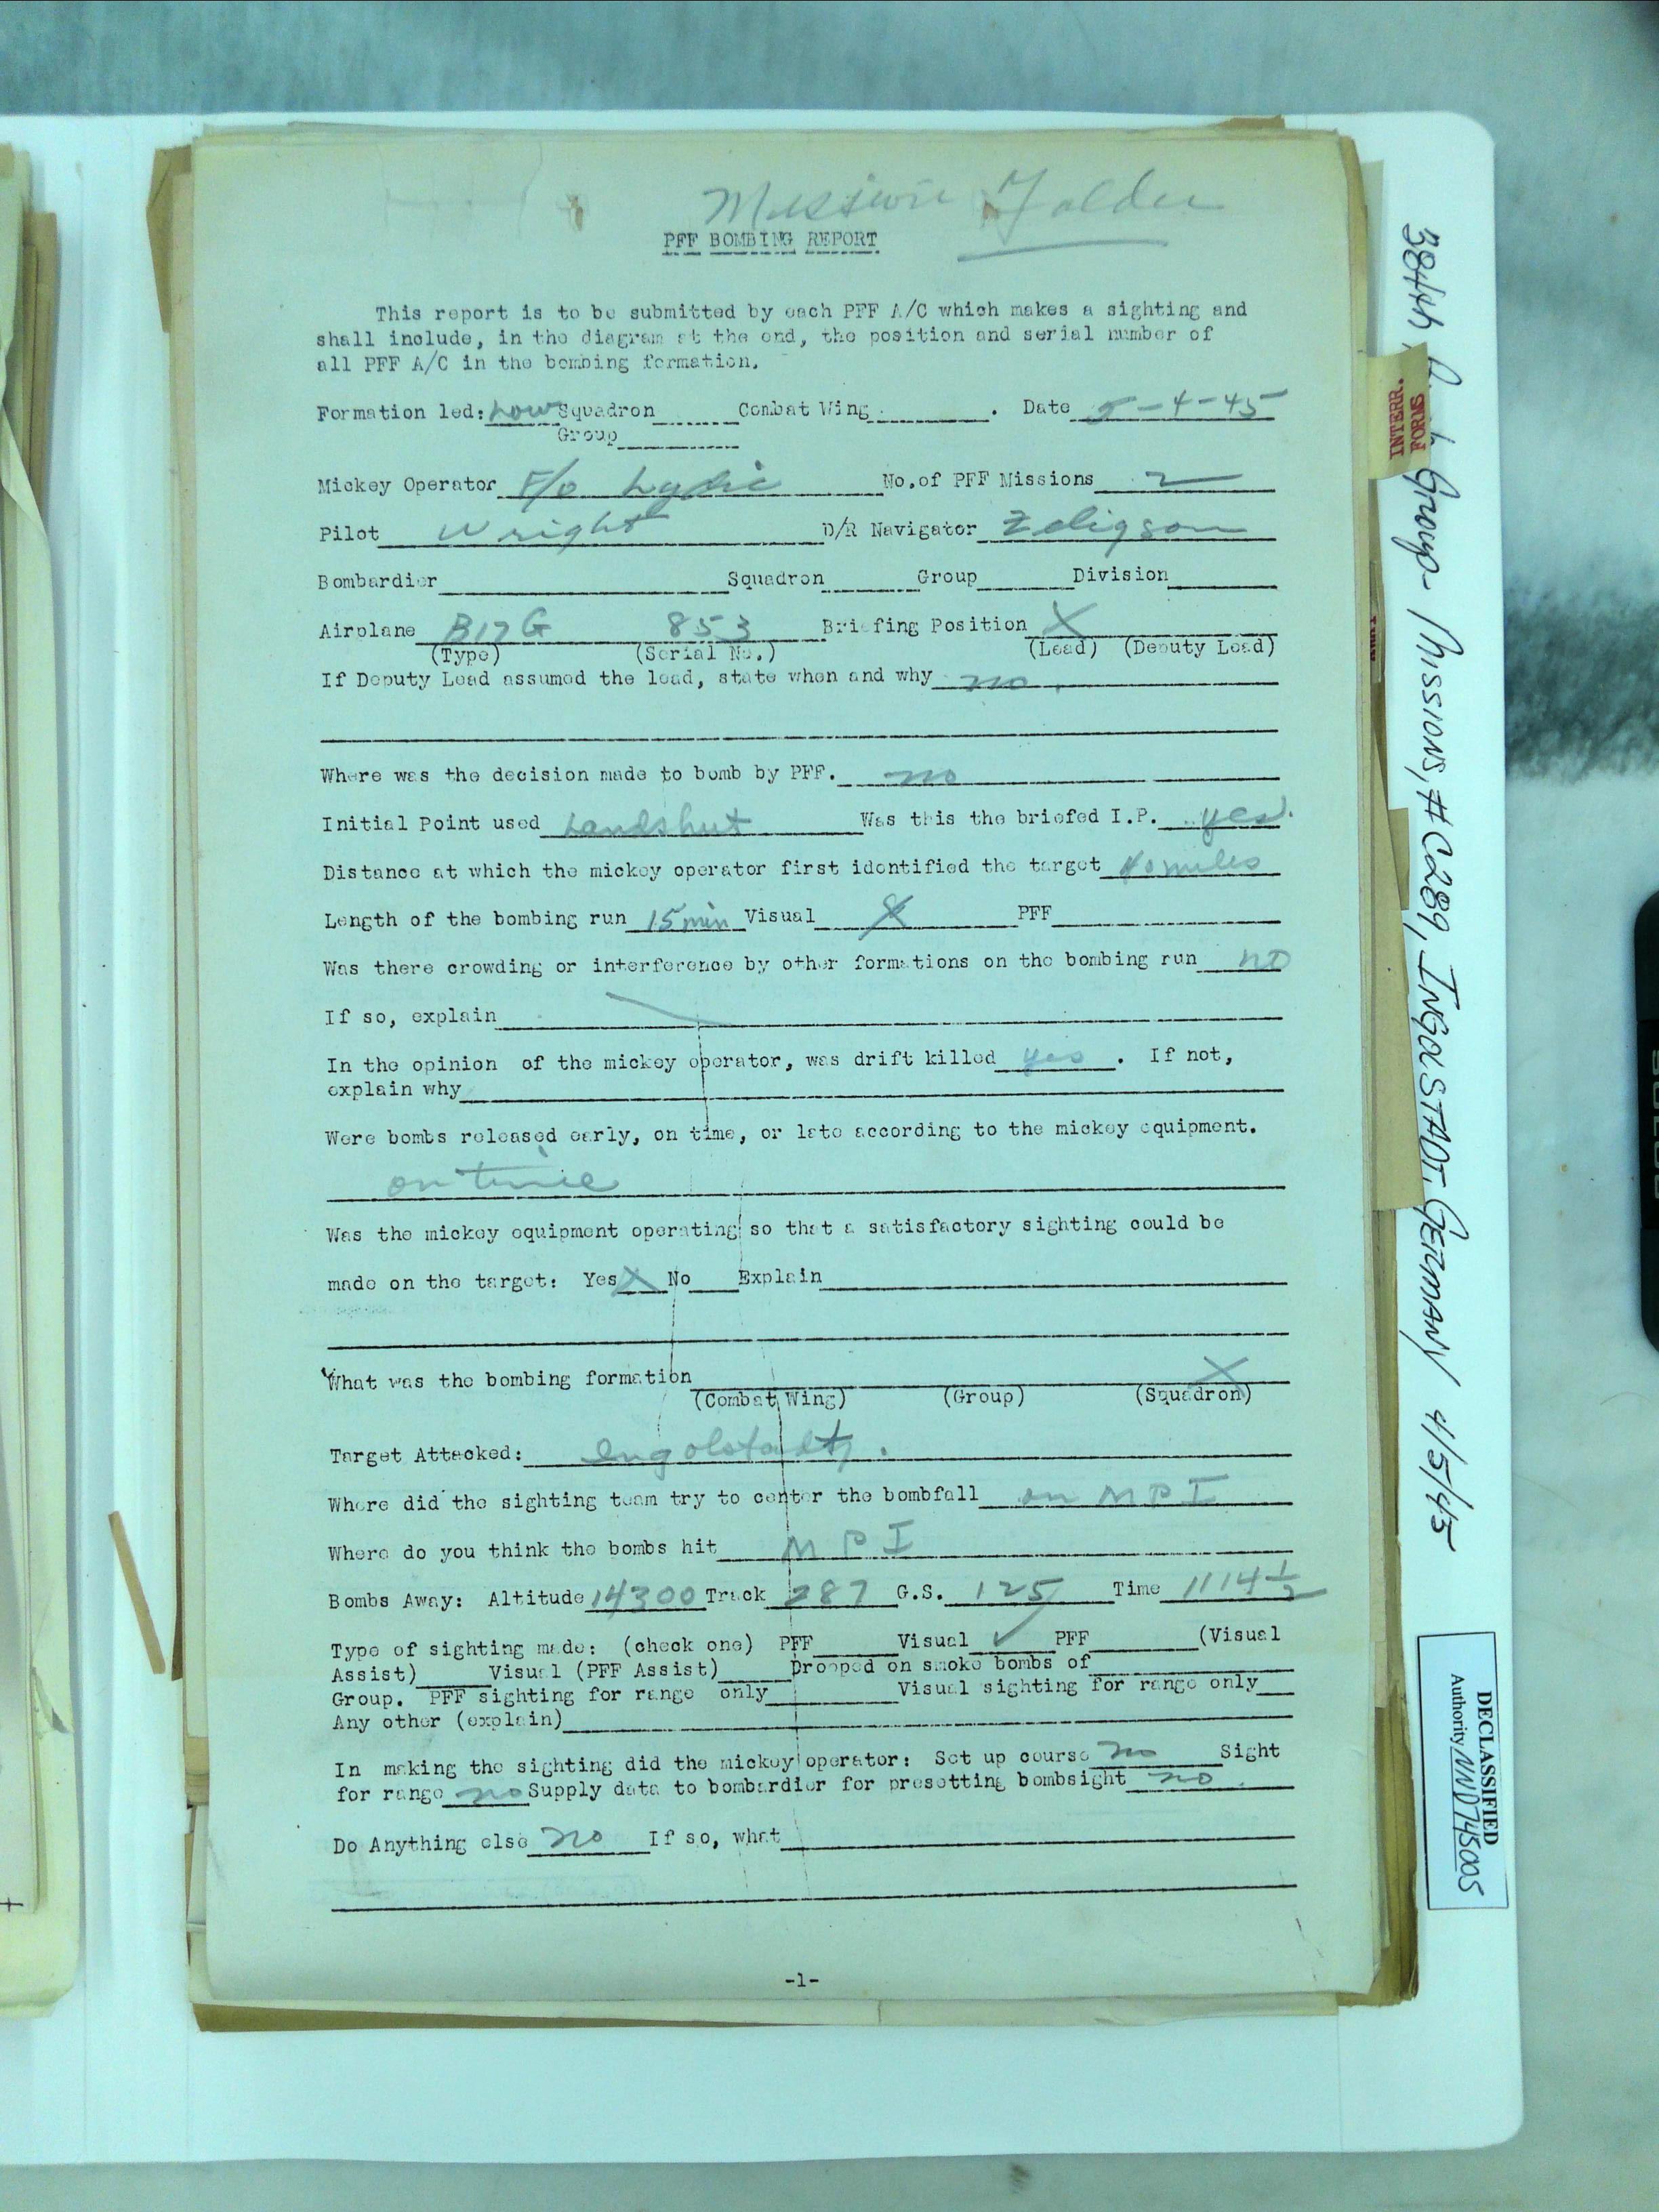 Mission Folder
PFF BOMBING REPORT
This report is to be submitted by each PFF A/C which makes a sighting and
shall include, in the diagram at the end, the position and serial number of
all PFF A/C in the bombing formation.
Formation led: Low Squadron Combat Wing . Date 5-4-45
Group
Mickey Operator F/O No. of PFF Missions 2
Pilot Wright D/R Navigator Zeligson
Bombardier Squadron Group Division
Airplane B17G 853 Briefing Position X
(Type) (Serial No.) (Lead) (Deputy Lead)
If Deputy Lead assumed the lead, state when and why no.
Where was the decision made to bomb by PFF. no
Initial Point used Landshut Was this the briefed I.P. yes.
Distance at which the mickey operator first identified the target 40 miles
Length of the bombing run 15 min Visual X PFF
Was there crowding or interference by other formations on the bombing run no
If so, explain
In the opinion of the mickey operator, was drift killed yes . If not,
explain why
Were bombs released early, on time, or late according to the mickey equipment.
on time
Was the mickey equipment operating so that a satisfactory sighting could be
made on the target: Yes X No Explain
What was the bombing formation X
(Combat Wing) (Group) (Squadron)
Target Attacked: Ingolstadt.
Where did the sighting team try to center the bombfall on MPI
Where do you think the bombs hit MPI
Bombs Away: Altitude 14300 Track 287 G.S. 125 Time 1114½
Type of sighting made: (check one) PFF Visual ✓ PFF (Visual
Assist) Visual (PFF Assist) Dropped on smoke bombs of
Group. PFF sighting for range only Visual sighting for range only
Any other (explain)
In making the sighting did the mickey operator: Set up course no Sight
for range no Supply data to bombardier for presetting bombsight no.
Do Anything else no If so, what
-1-
INTERR.
FORMS
384th Group - Missions, # C289, INGOLSTADT, GERMANY 4/5/45
DECLASSIFIED
Authority NND745005